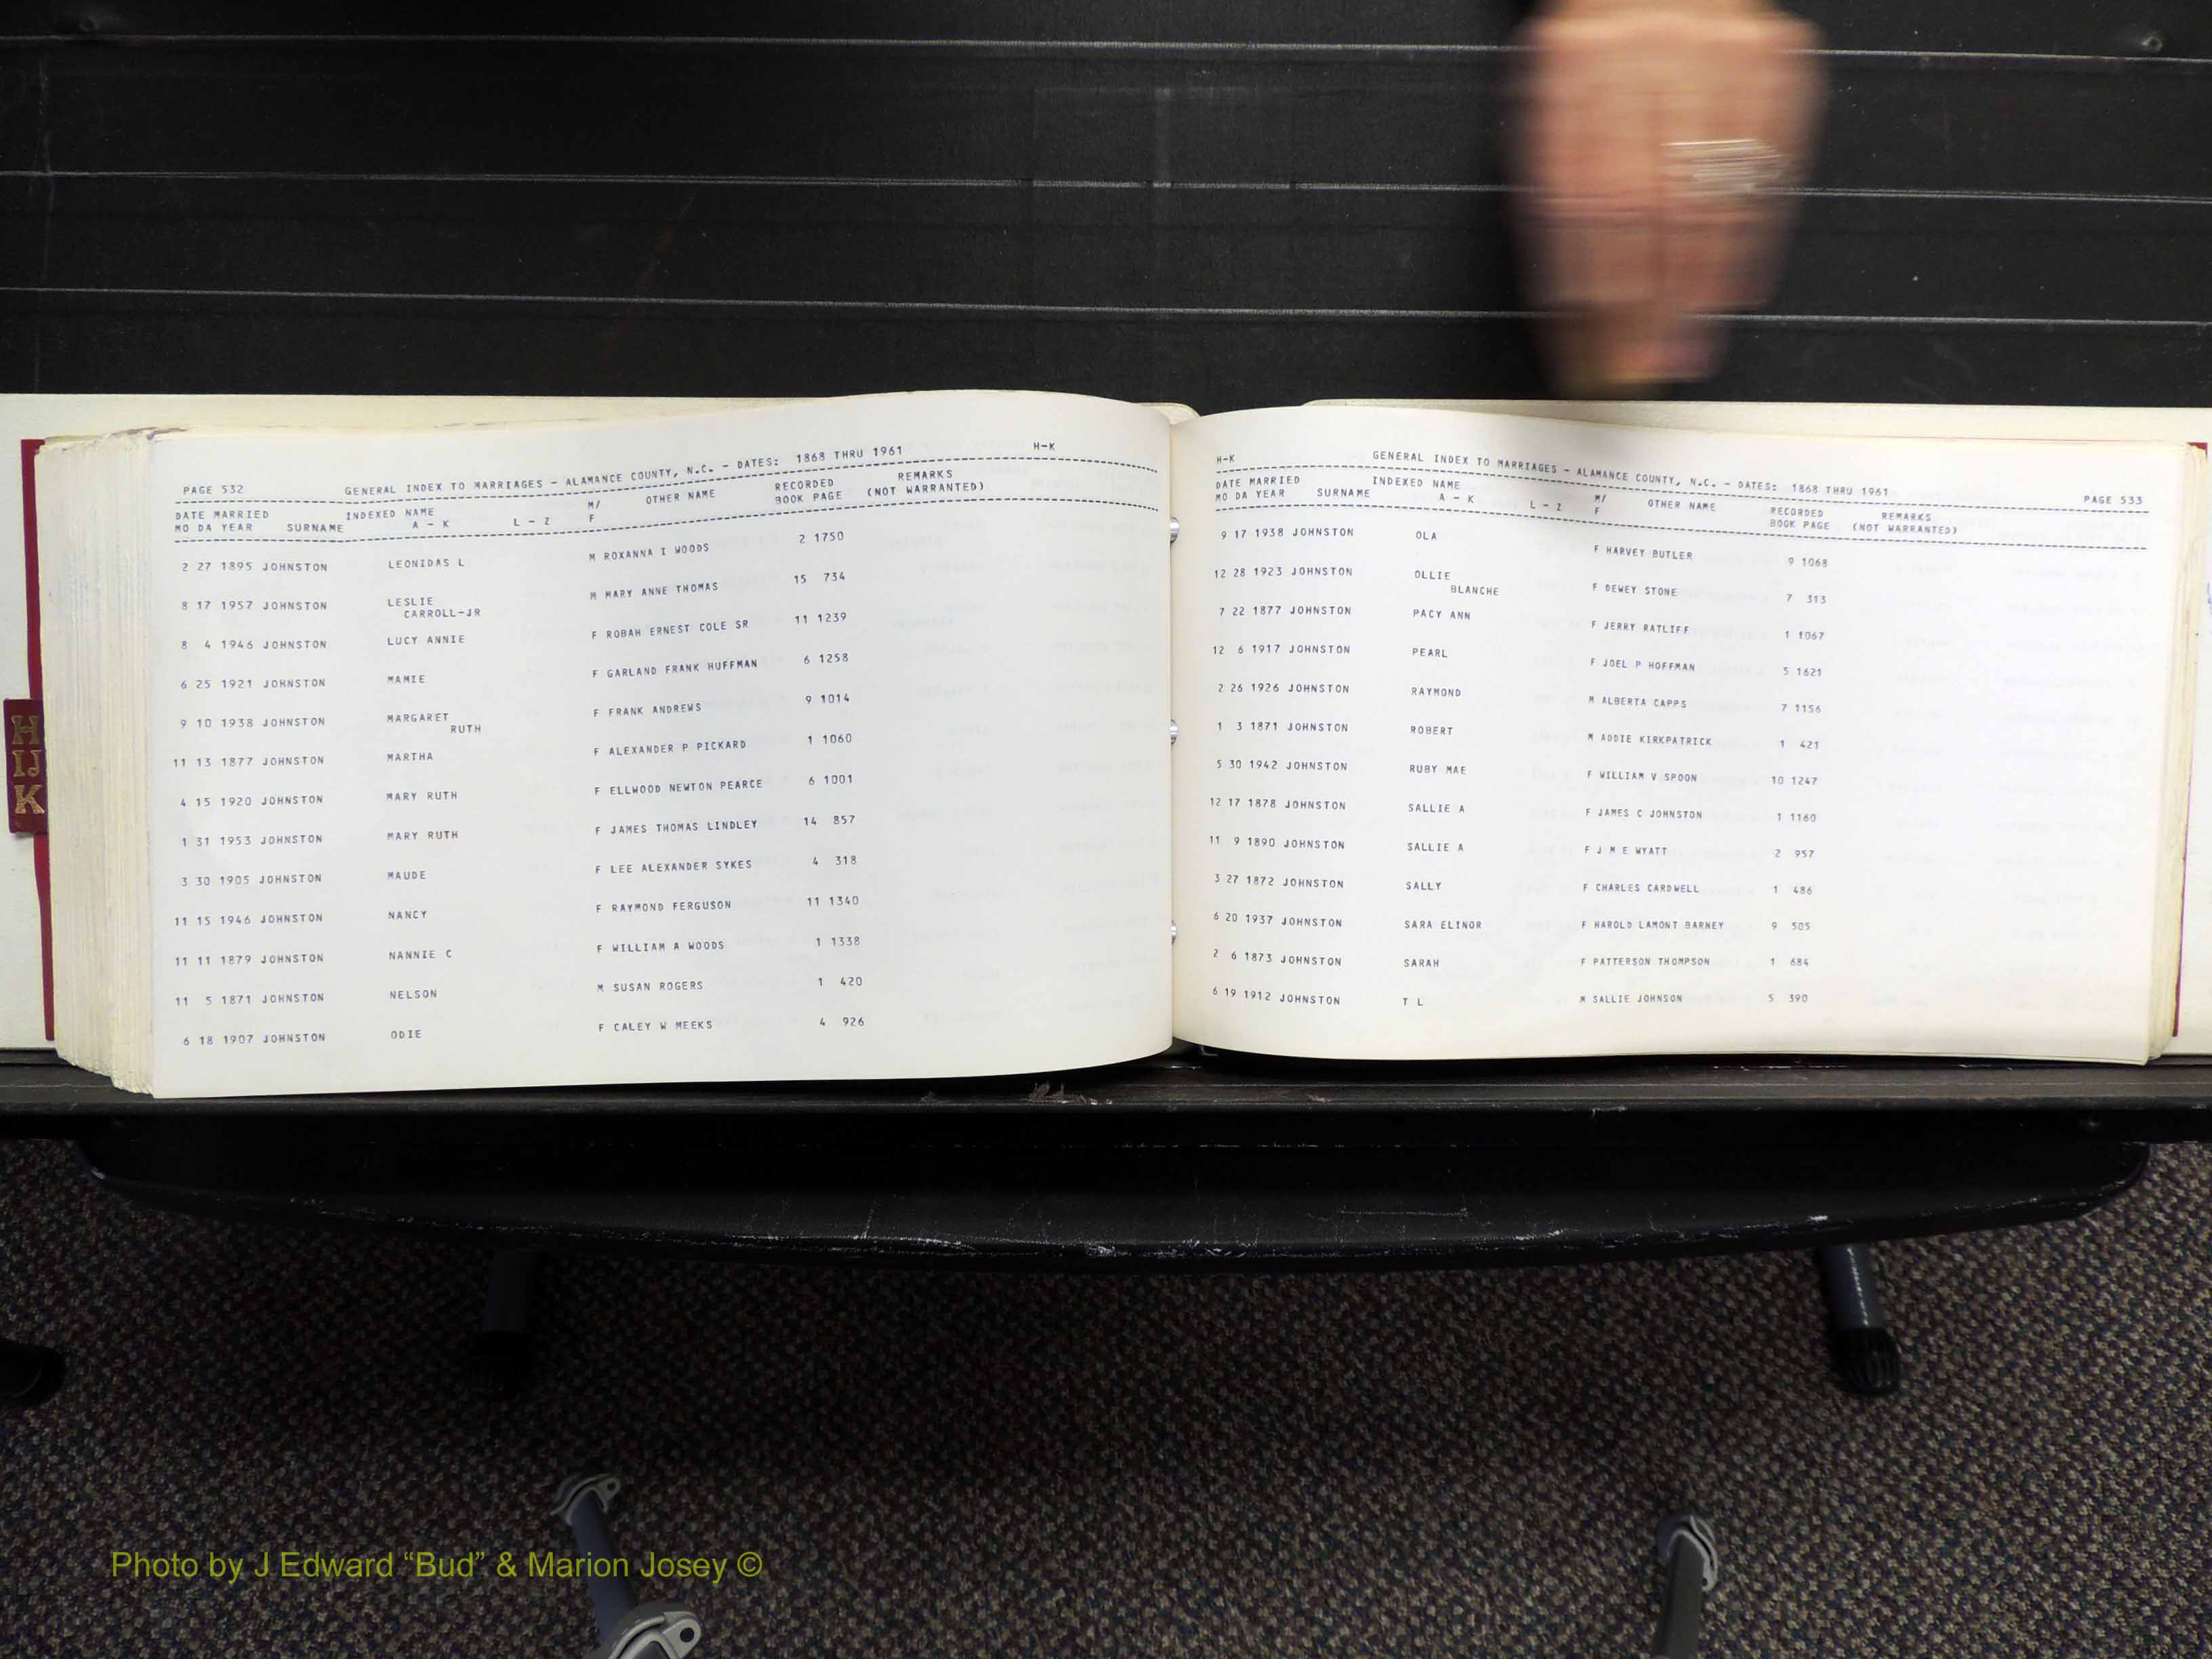 PAGE 532 GENERAL INDEX TO MARRIAGES - ALAMANCE COUNTY, N.C. - DATES: 1868 THRU 1961 H-K
DATE MARRIED INDEXED NAME M/ OTHER NAME RECORDED REMARKS
MO DA YEAR SURNAME A - K L - Z F BOOK PAGE (NOT WARRANTED)
2 27 1895 JOHNSTON LEONIDAS L M ROXANNA I WOODS 2 1750
8 17 1957 JOHNSTON LESLIE M MARY ANNE THOMAS 15 734
CARROLL-JR
8 4 1946 JOHNSTON LUCY ANNIE F ROBAH ERNEST COLE SR 11 1239
6 25 1921 JOHNSTON MAMIE F GARLAND FRANK HUFFMAN 6 1258
9 10 1938 JOHNSTON MARGARET F FRANK ANDREWS 9 1014
RUTH
11 13 1877 JOHNSTON MARTHA F ALEXANDER P PICKARD 1 1060
4 15 1920 JOHNSTON MARY RUTH F ELLWOOD NEWTON PEARCE 6 1001
1 31 1953 JOHNSTON MARY RUTH F JAMES THOMAS LINDLEY 14 857
3 30 1905 JOHNSTON MAUDE F LEE ALEXANDER SYKES 4 318
11 15 1946 JOHNSTON NANCY F RAYMOND FERGUSON 11 1340
11 11 1879 JOHNSTON NANNIE C F WILLIAM A WOODS 1 1338
11 5 1871 JOHNSTON NELSON M SUSAN ROGERS 1 420
6 18 1907 JOHNSTON ODIE F CALEY W MEEKS 4 926
H-K GENERAL INDEX TO MARRIAGES - ALAMANCE COUNTY, N.C. - DATES: 1868 THRU 1961 PAGE 533
DATE MARRIED INDEXED NAME M/ OTHER NAME RECORDED REMARKS
MO DA YEAR SURNAME A - K L - Z F BOOK PAGE (NOT WARRANTED)
9 17 1938 JOHNSTON OLA F HARVEY BUTLER 9 1068
12 28 1923 JOHNSTON OLLIE F DEWEY STONE 7 313
BLANCHE
7 22 1877 JOHNSTON PACY ANN F JERRY RATLIFF 1 1067
12 6 1917 JOHNSTON PEARL F JOEL P HOFFMAN 5 1621
2 26 1926 JOHNSTON RAYMOND M ALBERTA CAPPS 7 1156
1 3 1871 JOHNSTON ROBERT M ADDIE KIRKPATRICK 1 421
5 30 1942 JOHNSTON RUBY MAE F WILLIAM V SPOON 10 1247
12 17 1878 JOHNSTON SALLIE A F JAMES C JOHNSTON 1 1160
11 9 1890 JOHNSTON SALLIE A F J M E WYATT 2 957
3 27 1872 JOHNSTON SALLY F CHARLES CARDWELL 1 486
6 20 1937 JOHNSTON SARA ELINOR F HAROLD LAMONT BARNEY 9 505
2 6 1873 JOHNSTON SARAH F PATTERSON THOMPSON 1 684
6 19 1912 JOHNSTON T L M SALLIE JOHNSON 5 390
H
IJ
K
Photo by J Edward “Bud” & Marion Josey ©